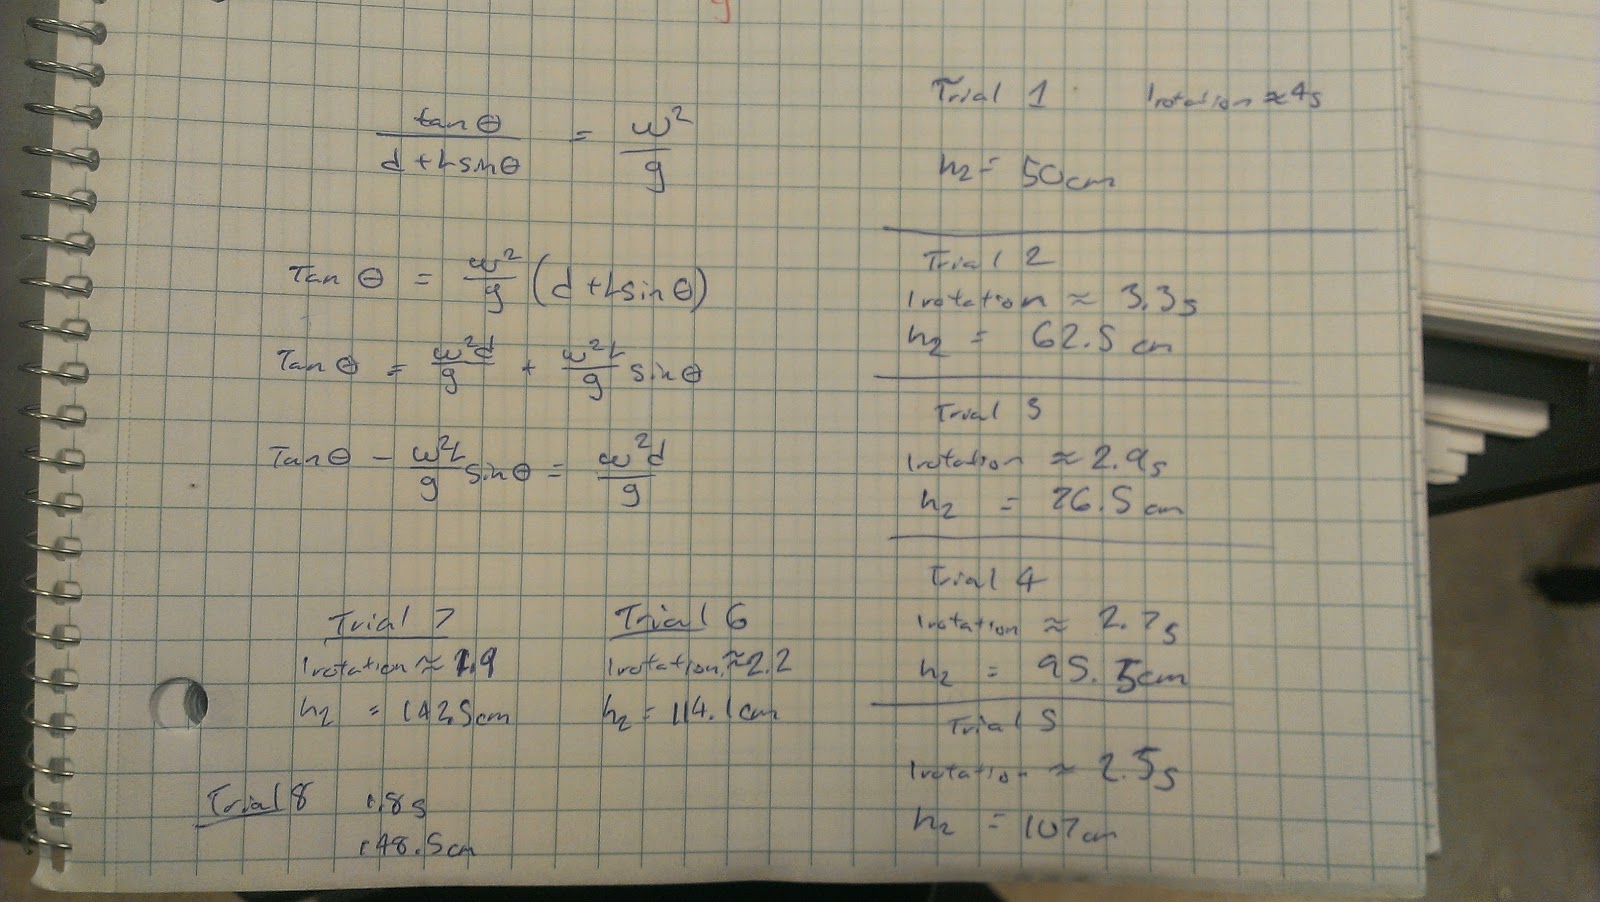 tanθ / (d + L sinθ) = ω² / g
Tan θ = ω²/g (d + L sin θ)
Tan θ = ω²d/g + ω²L/g sin θ
Tan θ − ω²L/g sin θ = ω²d/g
Trial 7
1 rotation ≈ 1.9
h₂ = 142.5cm
Trial 6
1 rotation ≈ 2.2
h₂ = 114.1cm
Trial 8 1.8s
148.5cm
Trial 1 1 rotation ≈ 4s
h₂ = 50cm
Trial 2
1 rotation ≈ 3.3s
h₂ = 62.5 cm
Trial 3
1 rotation ≈ 2.9s
h₂ = 76.5 cm
Trial 4
1 rotation ≈ 2.7s
h₂ = 95.5cm
Trial 5
1 rotation ≈ 2.5s
h₂ = 107cm